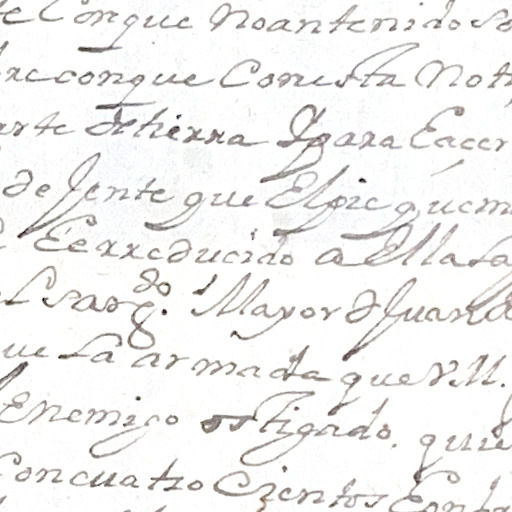 te Conque no an tenido so
re conque Con esta noti
arte de tierra Y para Eacer
de Jente que El pie que m
Ee rreducido a Ella la
el Sarg.do Mayor d Juan d
ue la armada que V M.
Enemigo ostigado. quie
Con cuatro Cientos